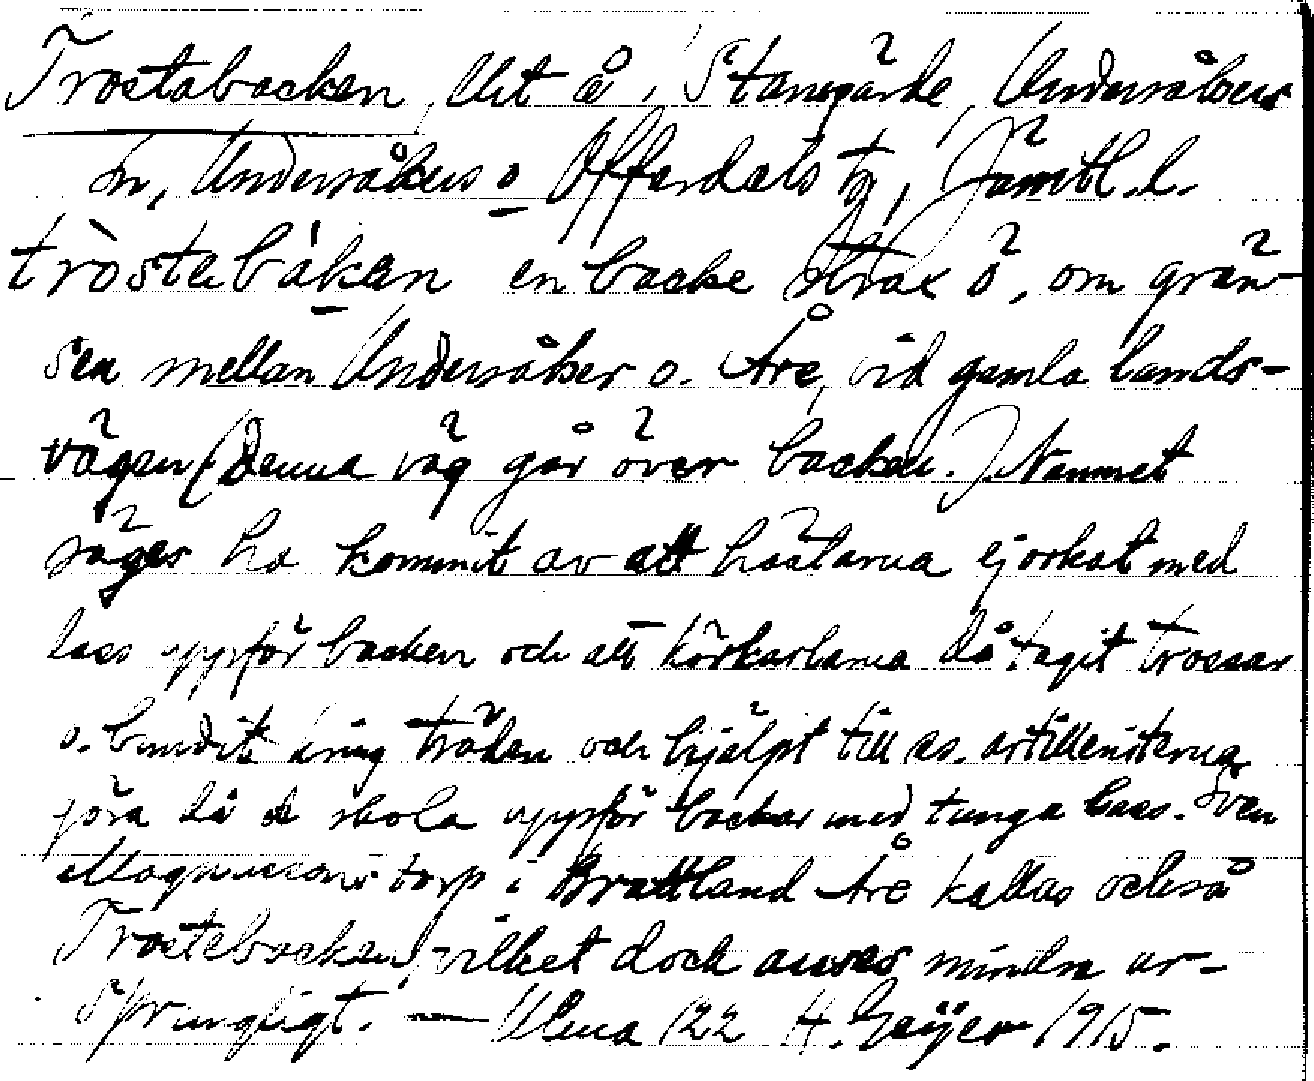 Trostabacken, Ut å, Stamgärde, Undersåkers
sn, Undersåkers o Offerdals tg, Jämtl. l.
tròstebákan en backe strax ö, om grän-
sen mellan Undersåker o. Åre, vid gamla lands-
vägen (Denna väg går över backen.) Namnet
säges ha kommit av att hästarna ej orkat med
lass uppför backen och att körkarlarna då tagit trossar
o. bundit kring träden och hjälpt till ss. artilleristerna
göra då de skola uppför backar med tunga lass. Sven
Magnussons torp i Brattland Åre kallas också
Trostebacken, vilket dock anses mindre ur-
sprungligt. — Ulma 122 H. Geijer 1915.